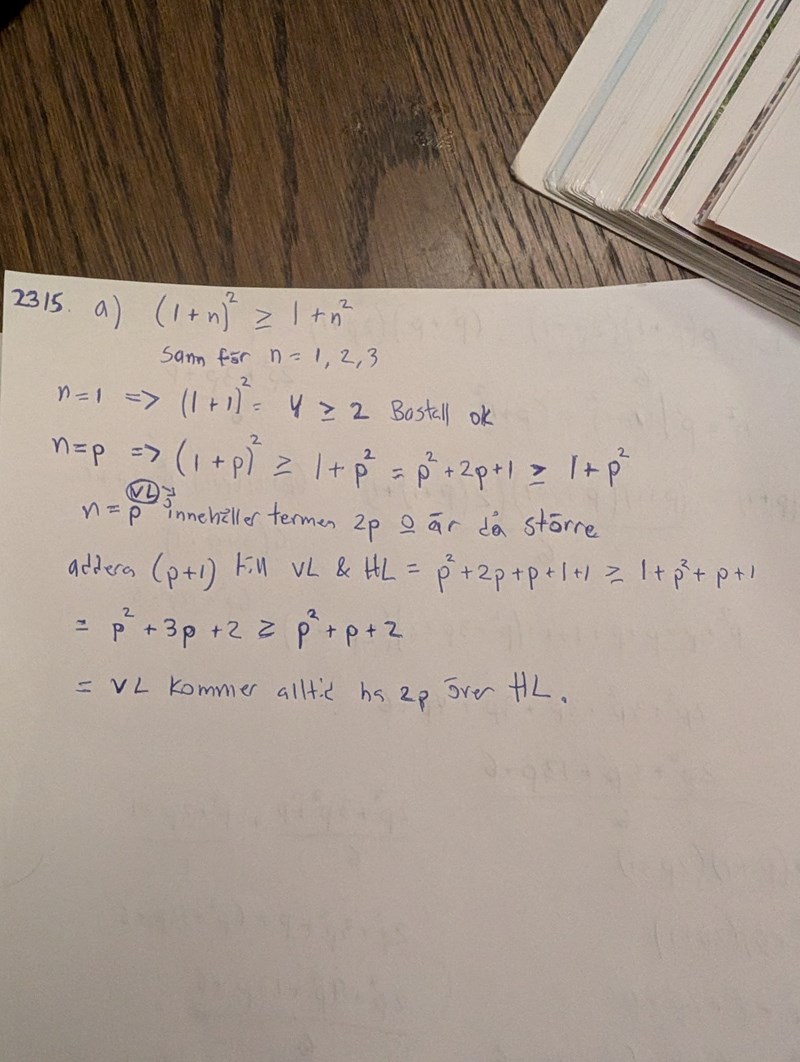 2315. a) (1+n)² ≥ 1+n²
Sann för n = 1, 2, 3
n=1 => (1+1)² = 4 ≥ 2 Basfall ok
n=p => (1+p)² ≥ 1+p² = p²+2p+1 ≥ 1+p²
n=p VL innehåller termen 2p o är då större
addera (p+1) till VL & HL = p²+2p+p+1+1 ≥ 1+p²+p+1
= p²+3p+2 ≥ p²+p+2
= VL kommer alltid ha 2p över HL.